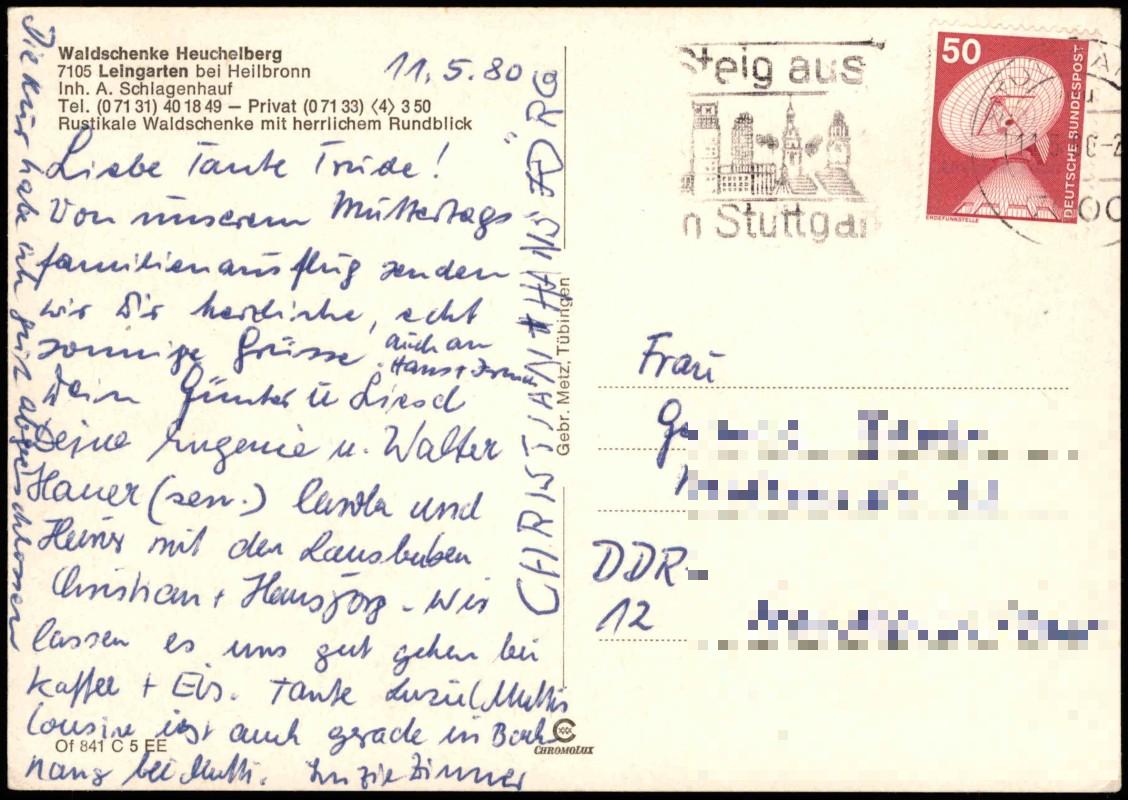 Waldschenke Heuchelberg
7105 Leingarten bei Heilbronn
Inh. A. Schlagenhauf
Tel. (0 71 31) 40 18 49 — Privat (0 71 33) (4) 3 50
Rustikale Waldschenke mit herrlichem Rundblick
11.5.80
Liebe Tante Trude!
Von unserem Muttertags
familienausflug senden
wir Dir herzliche, echt
sonnige Grüsse auch an
Hans +
Dein Günter u Liesel
Deine Eugenie u. Walter
Hauer (sen.) Carola und
Heinz mit den Lausbuben
Christian + Hansjörg - Wir
lassen es uns gut gehen bei
Kaffee + Eis. Tante Luzie (Muttis
Cousine ist auch gerade in Back-
nang bei Mutti. Luzie Zimmer
Die Kur habe ich gut abgeschlossen
CHRISTIAN + HANSJÖRG
Gebr. Metz, Tübingen
Of 841 C 5 EE
CHROMOLUX
Steig aus
n Stuttgar
50
DEUTSCHE BUNDESPOST
ERDEFUNKSTELLE
Frau
DDR-
12